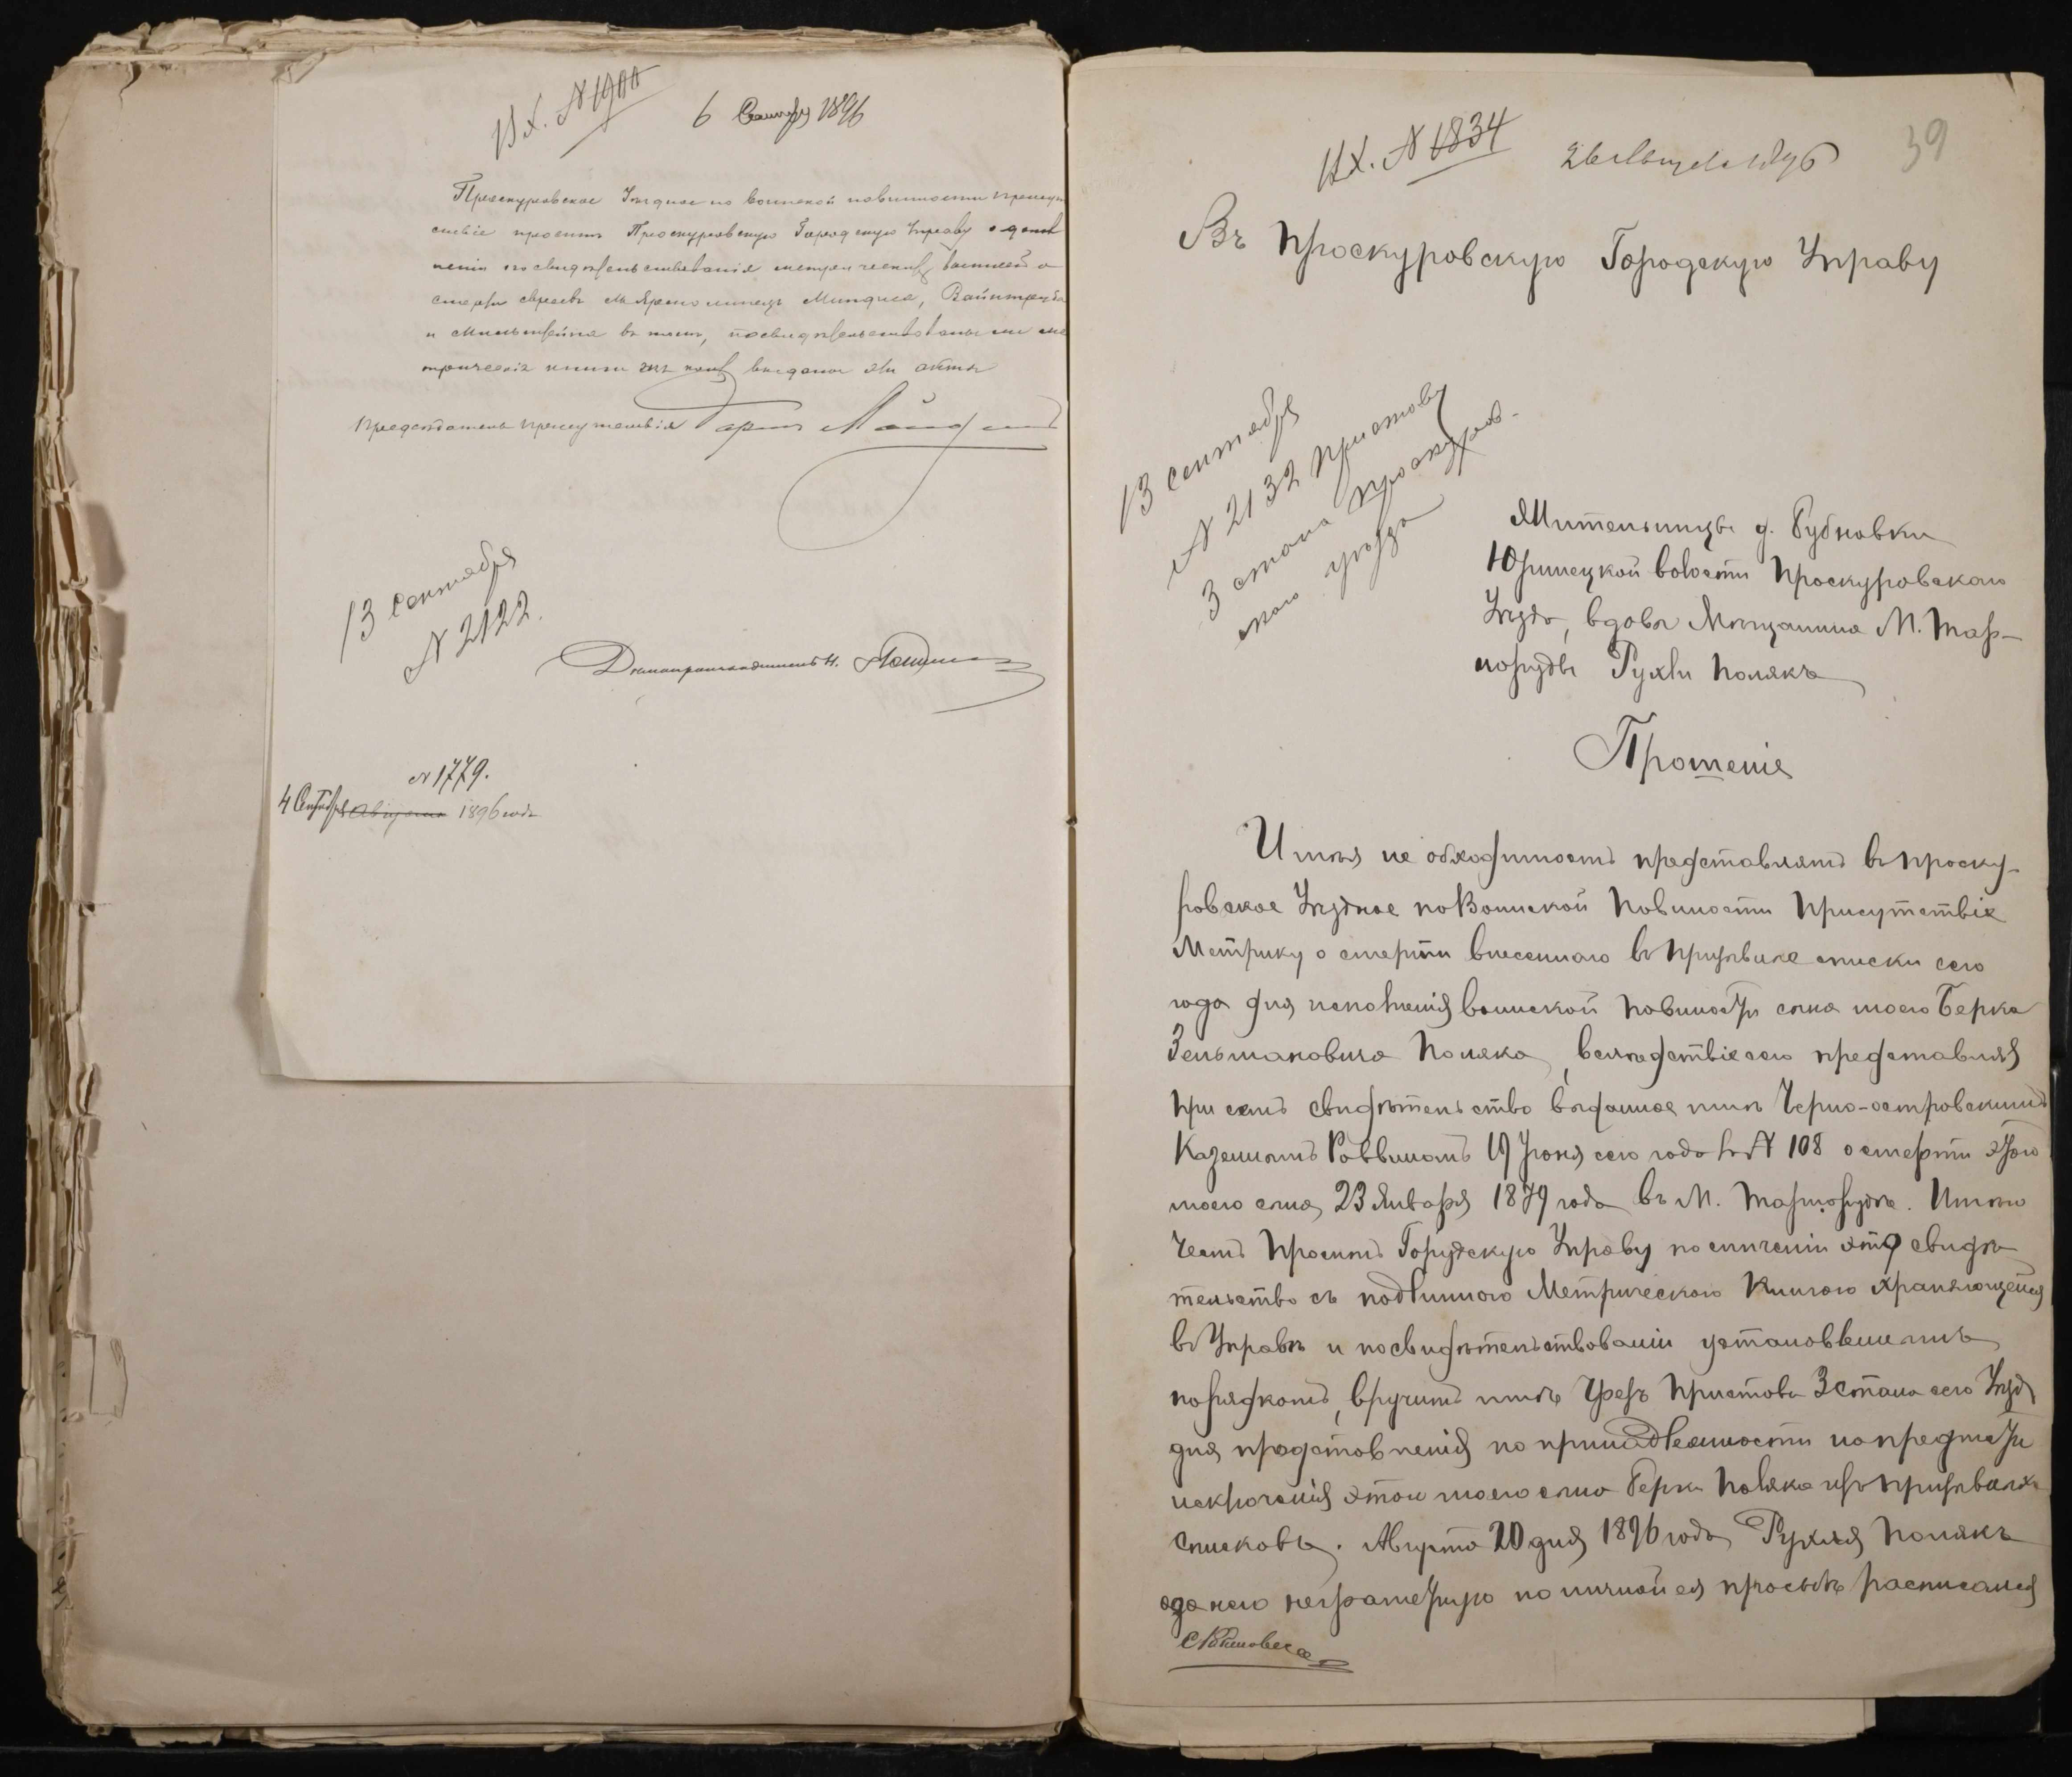 Вх. N 1900
6 Сентября 1896
Проскуровское Уѣздное по воинской повинности присут
ствіе проситъ Проскуровскую Городскую Управу о допол
неніи посвидѣтельствованія метрическихъ выписей о
смерти евреевъ м. Ярмолинецъ Миндиса, Вайнтрауба
и Мильштейна въ томъ, посвидѣтельствованы ли ме
трическія книги изъ коихъ выданы эти акты
Предсѣдатель присутствія
13 Сентября
N 2122.
Дѣлопроизводитель
N 1779.
4 Сентября Августа 1896 года
Вх. N 1834
26 Августа 1896
39
Въ Проскуровскую Городскую Управу
13 сентября
N 2132 Приставу
3 стана Проскуров-
скаго уѣзда
Жительницы д. Бубновки
Юринецкой волости Проскуровскаго
Уѣзда, вдовы Мѣщанина М. Тар-
норуды Рухли Полякъ
Прошеніе
Имѣя не обходимость представлять въ Проску-
ровское Уѣздное по Воинской Повиности Присутствіе
Метрику о смерти внесеннаго въ призывные списки сего
года для исполненія воинской повиности сына моего Берка
Зельмановича Поляка, вслѣдствіе сего представляя
при семъ свидѣтельство выданное мнѣ Черно-островскимъ
Казеннымъ Раввиномъ 19 Іюня сего года за N 108 о смерти этого
моего сына, 23 Января 1879 года въ М. Тарнорудѣ. Имѣю
честь просить Городскую Управу по сличеніи это свидѣ
тельство съ подлинного Метрическою Книгою храняющейся
въ Управѣ и посвидѣтельствованіи установленнымъ
порядкомъ, вручить мнѣ чрезъ Пристава 3 стана сего Уѣзда
для представленія по принадлежности на предметъ
исключенія этого моего сына Берки Поляка изъ призывныхъ
списковъ. Августа 20 дня 1896 года, Рухля Полякъ
а за нею неграмотную по личной ея просьбѣ расписался